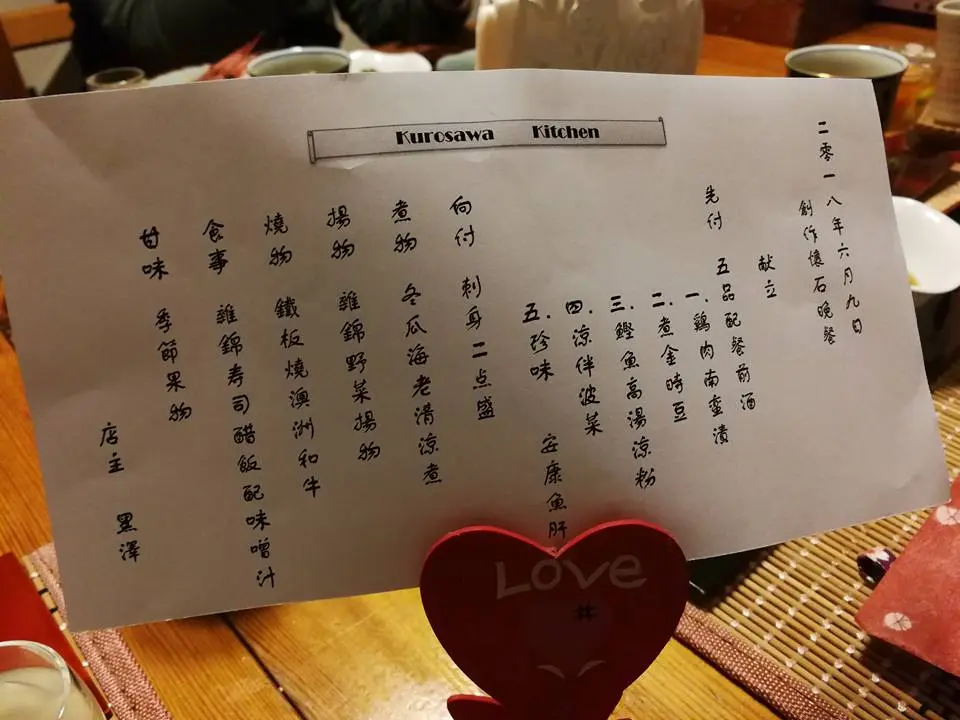 Kurosawa Kitchen
二零一八年六月九日
創作懷石晚餐
献立
先付 五品配餐前酒
一.鷄肉南蛮漬
二.煮金時豆
三.鰹魚高湯涼粉
四.涼伴波菜
五.珍味 安康魚肝
向付 刺身二点盛
煮物 冬瓜海老清涼煮
揚物 雜錦野菜揚物
燒物 鐵板燒澳洲和牛
食事 雜錦寿司醋飯配味噌汁
甘味 季節果物
店主 黑澤
Love
#